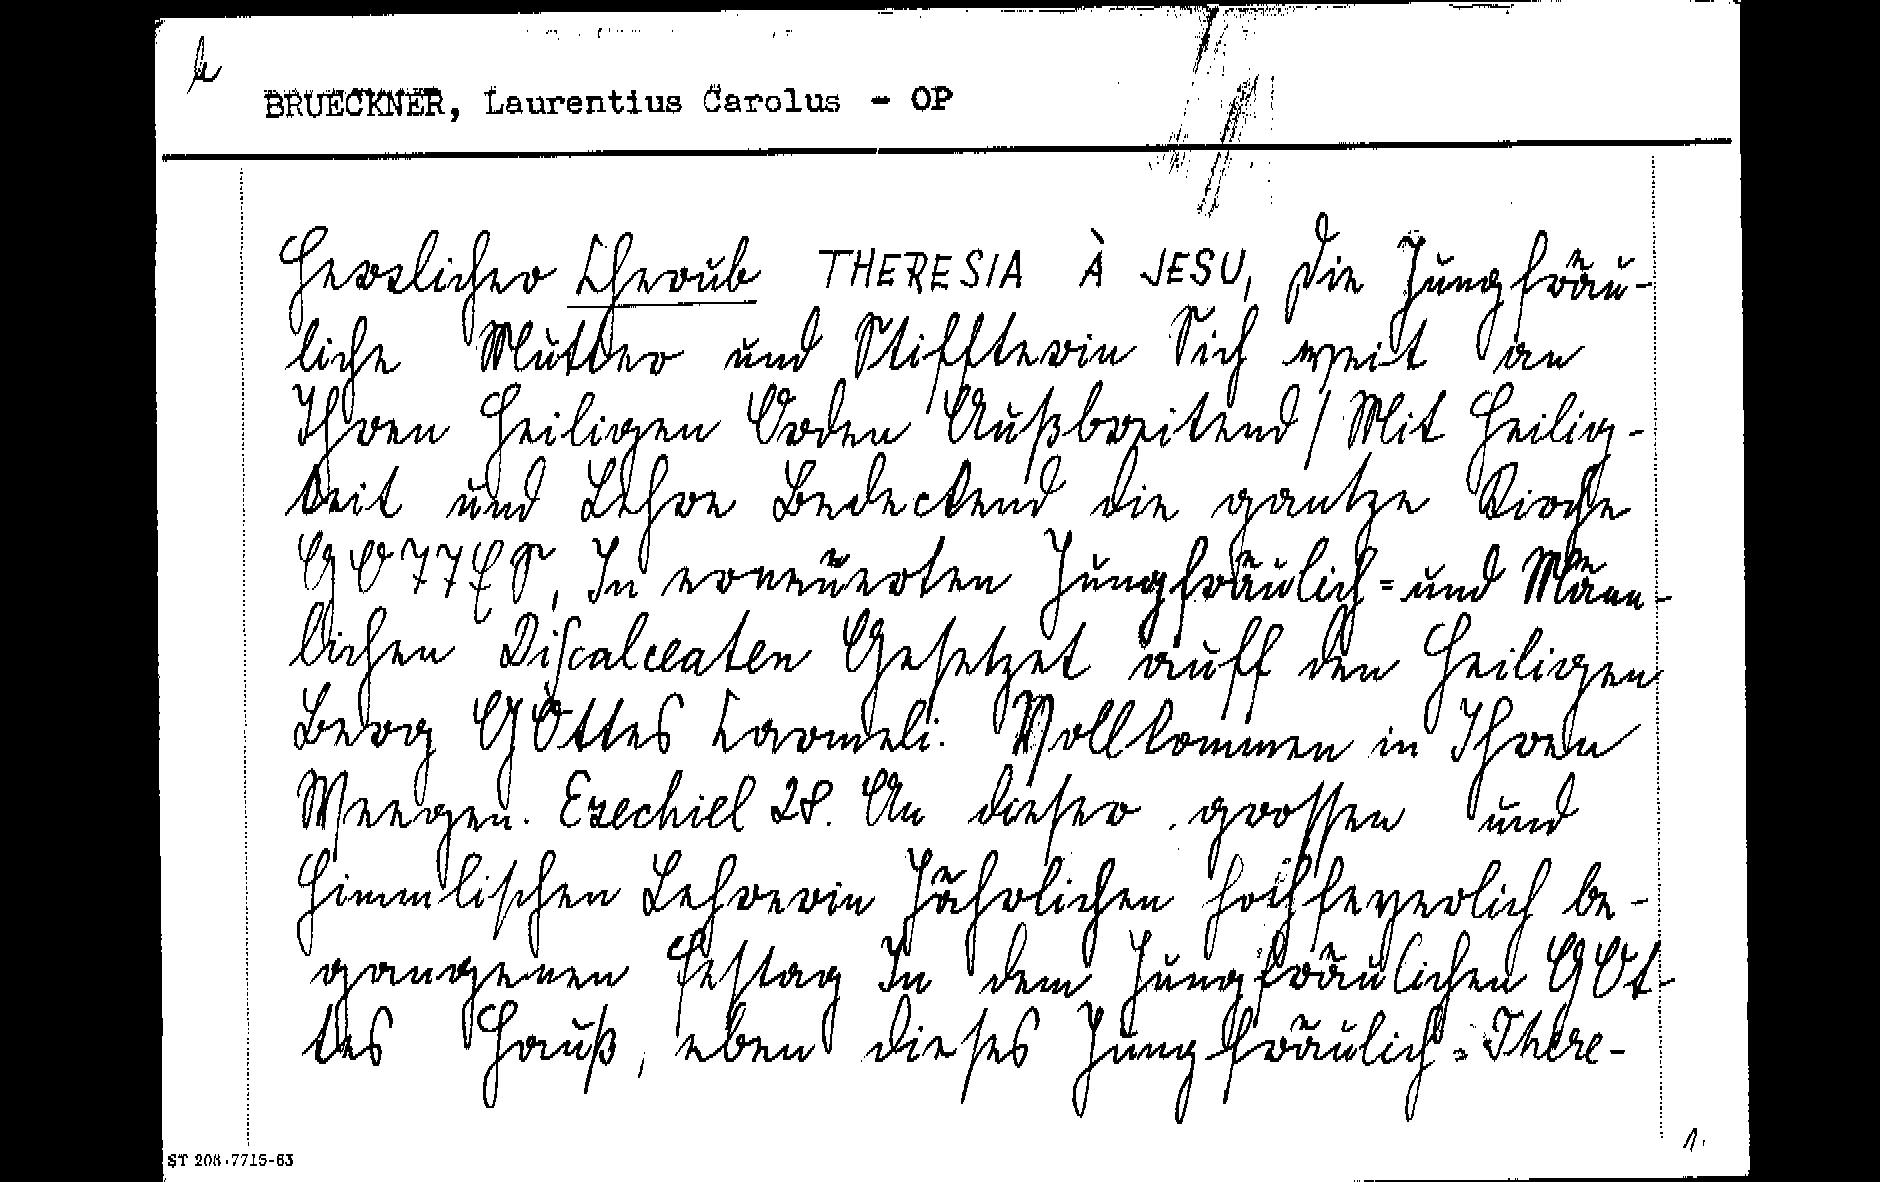 k
BRUECKNER, Laurentius Carolus - OP
Herzlicher Cherub THERESIA À JESU, die Jungfräu-
liche Mutter und Stiffterin Sich weit an
Ihren Heiligen Orden Außbreitend / Mit Heilig-
keit und Lehre Bedeckend die gantze Kirche
GOTTES, In erneüerten Jungfräulich= und Män-
lichen Discalceaten Gesetzet auff den Heiligen
Berg GOttes Carmeli. Vollkommen in Ihren
Weegen. Ezechiel 28. An dieser grossen und
Himmlischen Lehrerin Jährlichen hochfeyerlich be-
gangenen Festag In dem Jungfräulichen GOt-
tes Hauß, eben dieses Jungfräulich=There-
1.
ST 208.7715-63